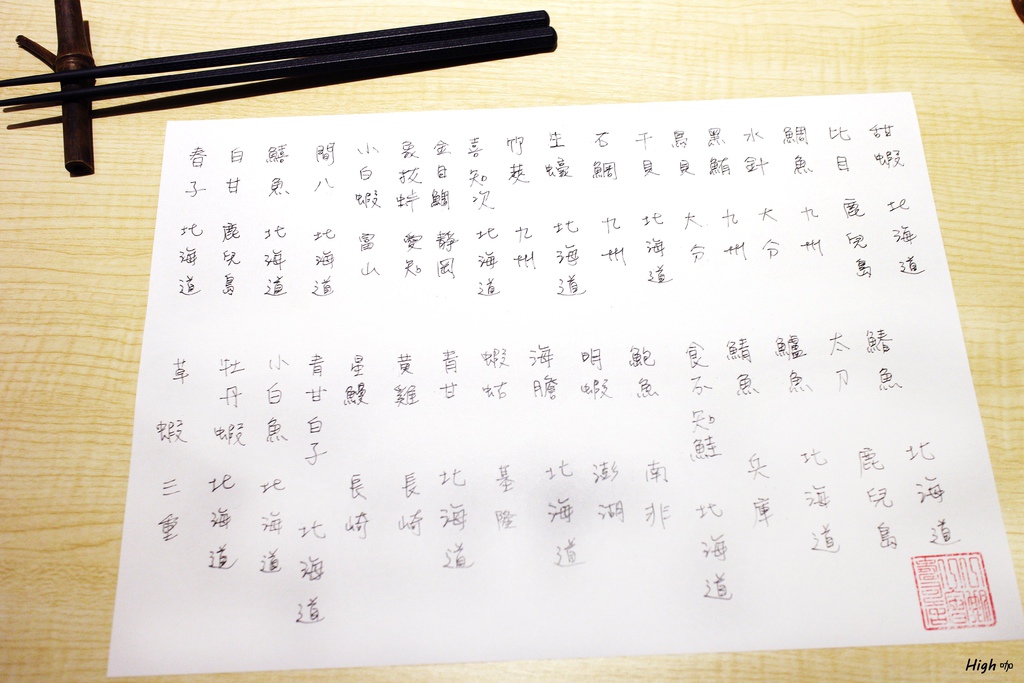 甜蝦 北海道
比目 鹿兒島
鯛魚 九州
水針 大分
黑鮪 九州
鳥貝 大分
干貝 北海道
石鯛 九州
生蠔 北海道
竹莢 九州
喜知次 北海道
金目鯛 靜岡
象拔蚌 愛知
小白蝦 富山
間八 北海道
鱚魚 北海道
白甘 鹿兒島
春子 北海道
鰆魚 北海道
太刀 鹿兒島
鱸魚 北海道
鯖魚 兵庫
食不知鮭 北海道
鮑魚 南非
明蝦 澎湖
海膽 北海道
蝦蛄 基隆
青甘 北海道
黃雞 長崎
星鰻 長崎
青甘白子 北海道
小白魚 北海道
牡丹蝦 北海道
草蝦 三重
High咖